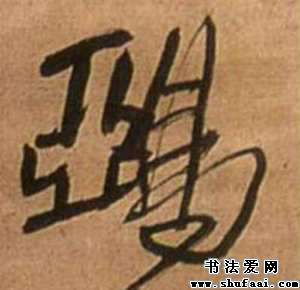 鵶
书法爱网
www.shufaai.com